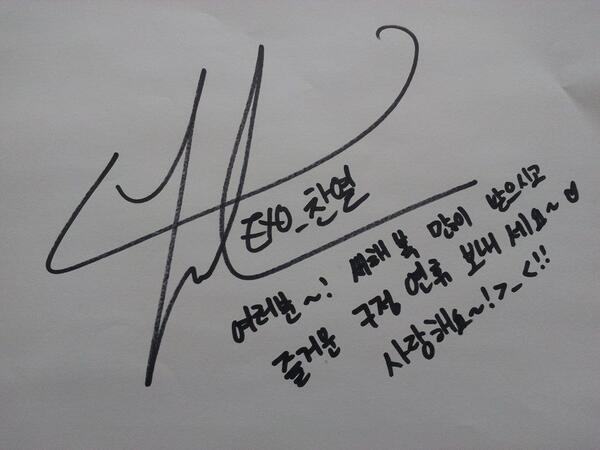 EXO_찬열
여러분~! 새해 복 많이 받으시고
즐거운 구정 연휴 보내세요~♡
사랑해요~!>_<!!